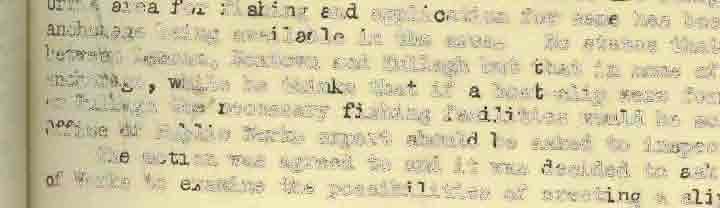 area for fishing and application for same has
anchorage being available in the area. He states that
between and Bullagh but that in none of
anchorage, while he thinks that if a boat slip were
or Bullagh the necessary fishing facilities would be
Office of Public Works expert should be asked to inspec
The action was agreed to and it was decided to ask
of Works to examine the possibilities of erecting a sli